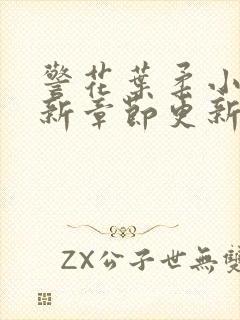 警花葉柔小
新章節更新
ZX公子世無雙